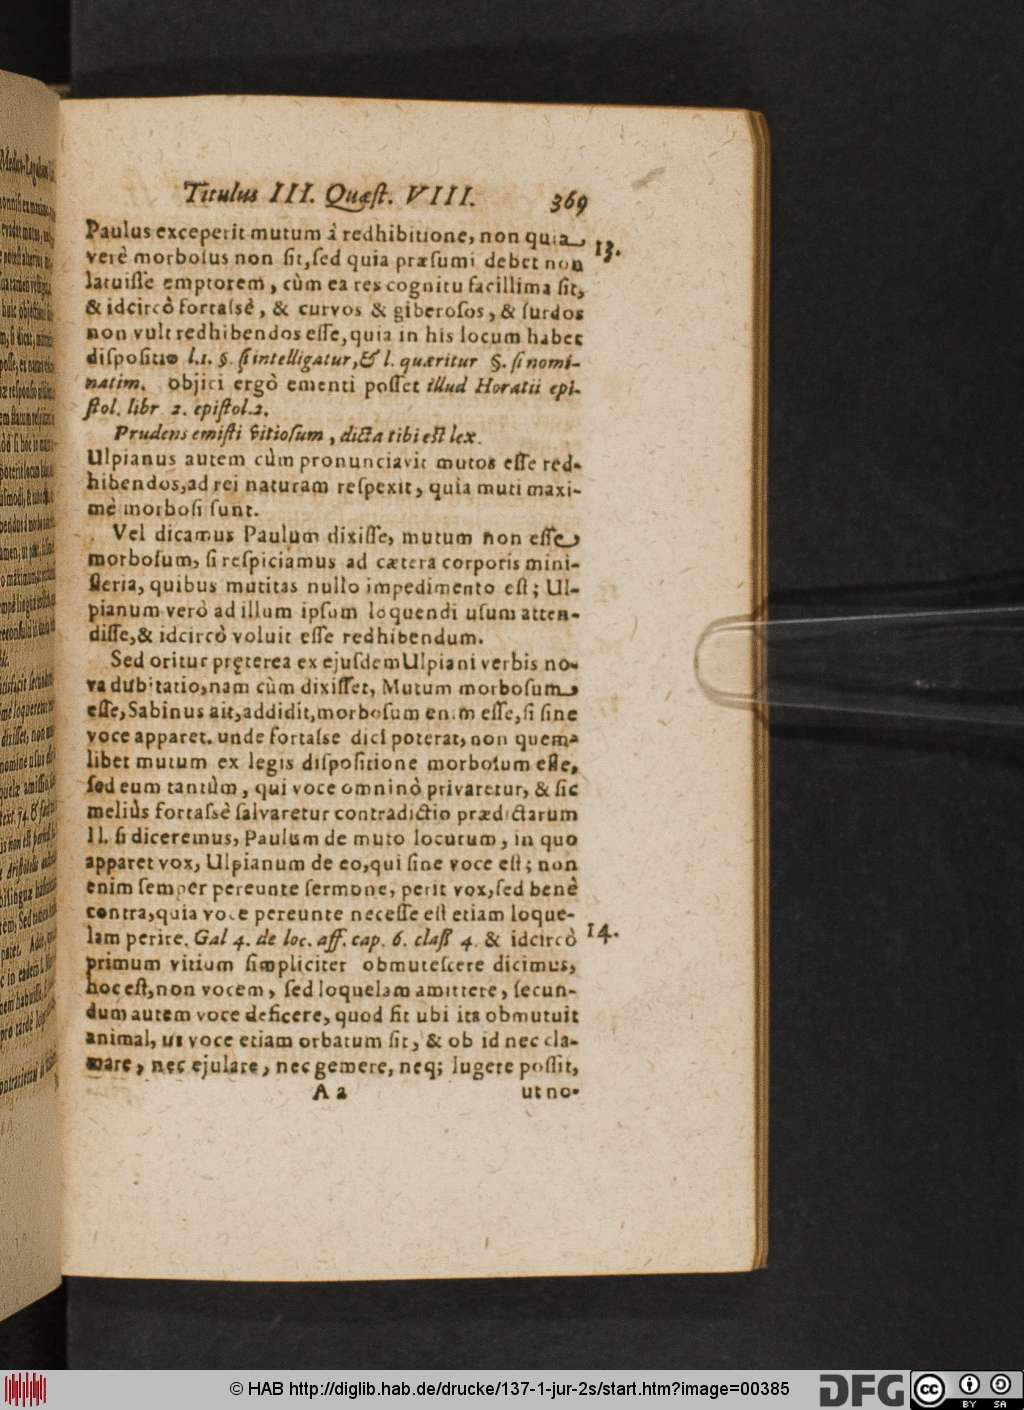 Titulus III. Quæſt. VIII. 369
Paulus exceperit mutum à redhibitione, non quia
13.
verè morboſus non ſit, ſed quia præſumi debet non
latuiſſe emptorem, cùm ea res cognitu facillima ſit,
& idcircò fortaſsè, & curvos & giberoſos, & ſurdos
non vult redhibendos eſſe, quia in his locum habet
diſpoſitio l.1. §. ſi intelligatur, & l. quæritur §. ſi nomi-
natim. objici ergò ementi poſſet illud Horatii epi-
ſtol. libr 2. epiſtol.2.
Prudens emiſti vitioſum, dicta tibi eſt lex.
Ulpianus autem cùm pronunciavit mutos eſſe red-
hibendos, ad rei naturam reſpexit, quia muti maxi-
mè morboſi ſunt.
Vel dicamus Paulum dixiſſe, mutum non eſſe
morboſum, ſi reſpiciamus ad cætera corporis mini-
ſteria, quibus mutitas nullo impedimento eſt; Ul-
pianum verò ad illum ipſum loquendi uſum atten-
diſſe, & idcircò voluit eſſe redhibendum.
Sed oritur pręterea ex ejuſdem Ulpiani verbis no-
va dubitatio, nam cùm dixiſſet, Mutum morboſum
eſſe, Sabinus ait, addidit, morboſum enim eſſe, ſi ſine
voce apparet. unde fortaſse dici poterat, non quem-
libet mutum ex legis diſpoſitione morboſum eſſe,
ſed eum tantùm, qui voce omninò privaretur, & ſic
meliùs fortaſsè ſalvaretur contradictio prædictarum
ll. ſi diceremus, Paulum de muto locutum, in quo
apparet vox, Ulpianum de eo, qui ſine voce eſt; non
enim ſemper pereunte ſermone, perit vox, ſed benè
contra, quia voce pereunte neceſſe eſt etiam loque-
lam perire. Gal 4. de loc. aff. cap. 6. claſſ 4. & idcircò
14.
primum vitium ſimpliciter obmuteſcere dicimus,
hoc eſt, non vocem, ſed loquelam amittere, ſecun-
dum autem voce deficere, quod fit ubi ita obmutuit
animal, ut voce etiam orbatum ſit, & ob id nec cla-
mare, nec ejulare, nec gemere, neq; lugere poſſit,
A a ut no-
© HAB http://diglib.hab.de/drucke/137-1-jur-2s/start.htm?image=00385
DFG
cc BY SA